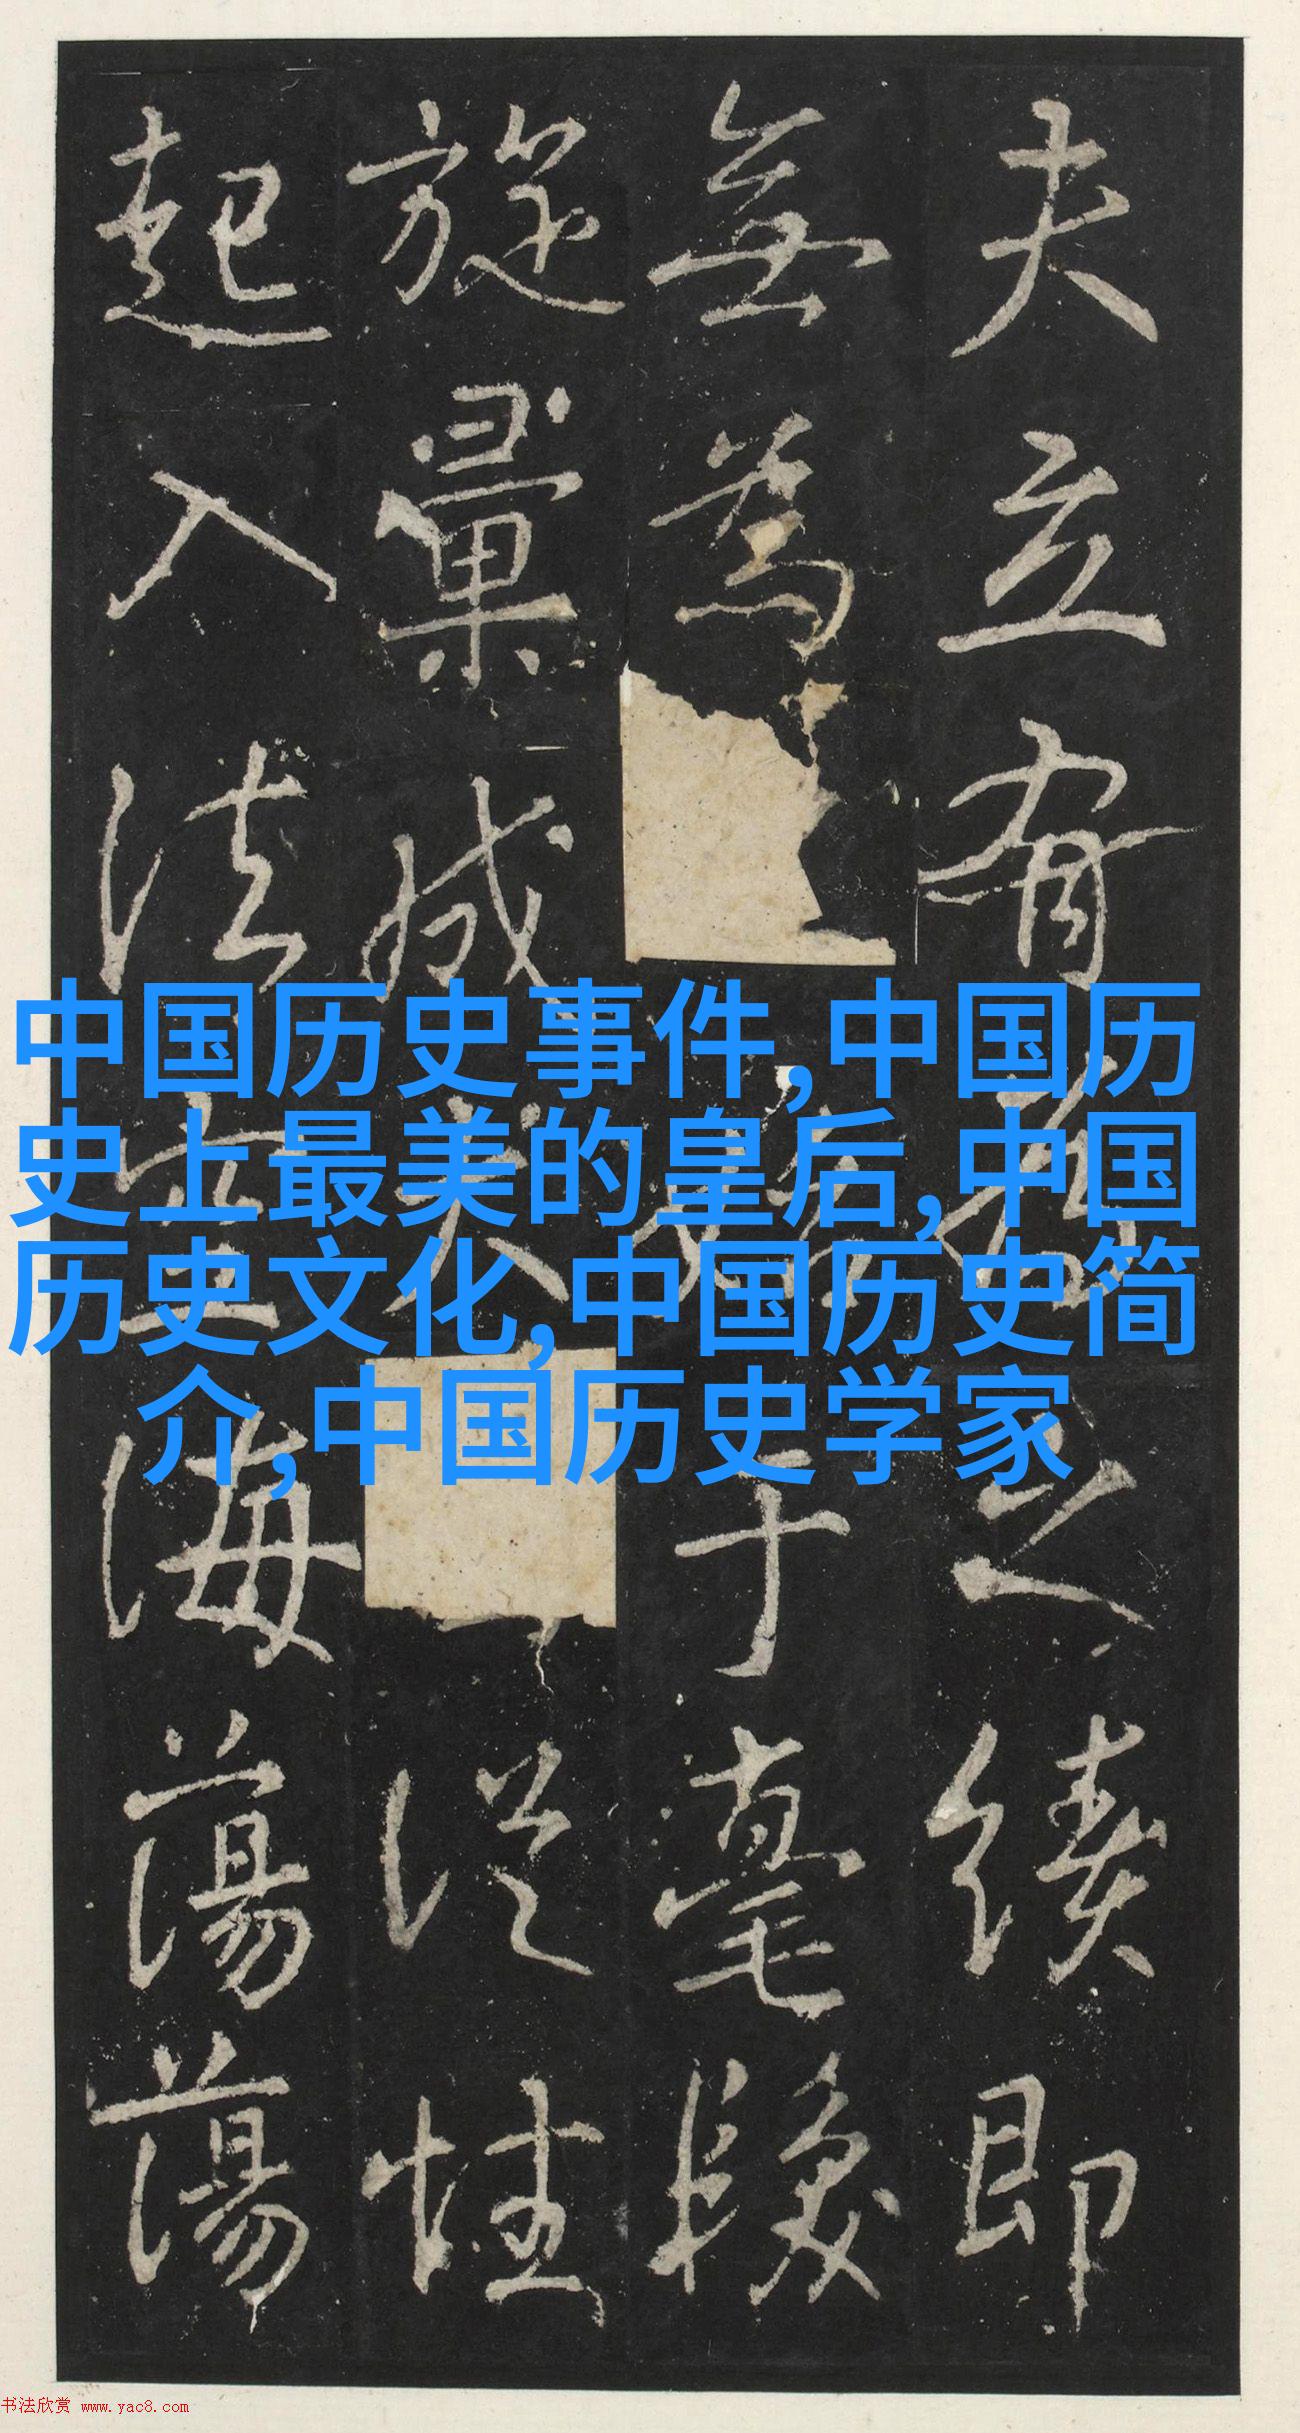 夫立有之續即
無為于毫
旋彙成從性
起入法海蕩蕩
中国历史事件,中国历
史上最美的皇后,中国
历史文化,中国历史简
介,中国历史学家
书法欣赏 www.yac8.com